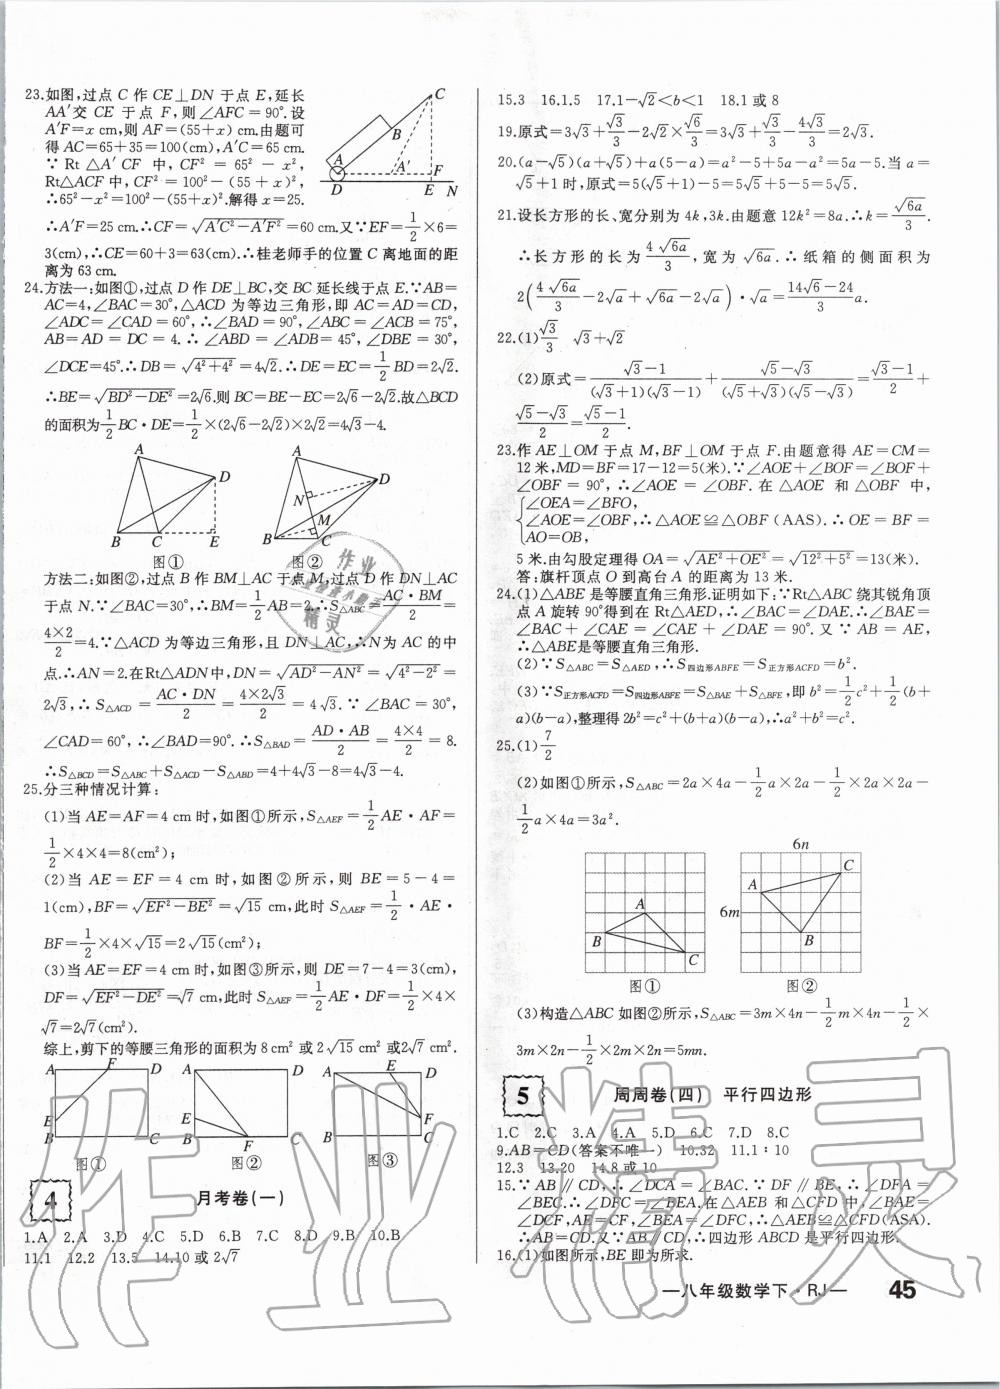 23.如图,过点 C 作 CE⊥DN 于点 E,延长
AA′交 CE 于点 F,则∠AFC=90°.设
A′F=x cm,则 AF=(55+x) cm.由题可
得 AC=65+35=100(cm),A′C=65 cm.
∵ Rt△A′CF 中, CF²=65²-x²,
Rt△ACF 中, CF²=100²-(55+x)²,
∴65²-x²=100²-(55+x)².解得 x=25.
∴A′F=25 cm.∴CF=√(A′C²-A′F²)=60 cm.又∵EF=1/2×6=
3(cm),∴CE=60+3=63(cm).∴桂老师手的位置 C 离地面的距
离为 63 cm.
A B C A′ F D E N
24.方法一:如图①,过点 D 作 DE⊥BC,交 BC 延长线于点 E.∵AB=
AC=4,∠BAC=30°,△ACD 为等边三角形,即 AC=AD=CD,
∠ADC=∠CAD=60°,∴∠BAD=90°,∠ABC=∠ACB=75°,
AB=AD=DC=4.∴∠ABD=∠ADB=45°,∠DBE=30°,
∠DCE=45°.∴DB=√(4²+4²)=4√2.∴DE=EC=1/2BD=2√2.
∴BE=√(BD²-DE²)=2√6.则 BC=BE-EC=2√6-2√2.故△BCD
的面积为1/2BC·DE=1/2×(2√6-2√2)×2√2=4√3-4.
A D B C E
图①
A D N M B C
图②
方法二:如图②,过点 B 作 BM⊥AC 于点 M,过点 D 作 DN⊥AC
于点 N.∵∠BAC=30°,∴BM=1/2AB=2.∴S△ABC=AC·BM/2=
4×2/2=4.∵△ACD 为等边三角形,且 DN⊥AC,∴N为 AC 的中
点.∴AN=2.在Rt△ADN中,DN=√(AD²-AN²)=√(4²-2²)=
2√3,∴S△ACD=AC·DN/2=4×2√3/2=4√3.∵∠BAC=30°,
∠CAD=60°,∴∠BAD=90°.∴S△BAD=AD·AB/2=4×4/2=8.
∴S△BCD=S△ABC+S△ACD-S△ABD=4+4√3-8=4√3-4.
25.分三种情况计算:
(1)当 AE=AF=4 cm 时,如图①所示,S△AEF=1/2AE·AF=
1/2×4×4=8(cm²);
(2)当 AE=EF=4 cm 时,如图②所示,则 BE=5-4=
1(cm),BF=√(EF²-BE²)=√15 cm,此时 S△AEF=1/2·AE·
BF=1/2×4×√15=2√15(cm²);
(3)当 AE=EF=4 cm 时,如图③所示,则 DE=7-4=3(cm),
DF=√(EF²-DE²)=√7 cm,此时 S△AEF=1/2AE·DF=1/2×4×
√7=2√7(cm²).
综上,剪下的等腰三角形的面积为 8 cm² 或 2√15 cm²或2√7 cm².
A F D E B C
图①
A D E B F C
图②
A E D F B C
图③
4 月考卷(一)
1.A 2.A 3.D 4.C 5.D 6.B 7.C 8.D 9.B 10.B
11.1 12.2 13.5 14.10 或 2√7
15.3 16.1.5 17.1-√2<b<1 18.1 或 8
19.原式=3√3+√3/3-2√2×√6/3=3√3+√3/3-4√3/3=2√3.
20.(a-√5)(a+√5)+a(5-a)=a²-5+5a-a²=5a-5.当 a=
√5+1时,原式=5(√5+1)-5=5√5+5-5=5√5.
21.设长方形的长、宽分别为 4k,3k.由题意 12k²=8a.∴k=√6a/3.
∴长方形的长为4√6a/3,宽为√6a.∴纸箱的侧面积为
2(4√6a/3-2√a+√6a-2√a)·√a=(14√6-24)/3 a.
22.(1)√3/3 √3+√2
(2)原式=(√3-1)/((√3+1)(√3-1))+(√5-√3)/((√5+√3)(√5-√3))=(√3-1)/2+
(√5-√3)/2=(√5-1)/2.
23.作 AE⊥OM 于点 M,BF⊥OM 于点 F.由题意得 AE=CM=
12米,MD=BF=17-12=5(米).∵∠AOE+∠BOF=∠BOF+
∠OBF=90°,∴∠AOE=∠OBF.在△AOE 和△OBF 中,
{∠OEA=∠BFO,
∠AOE=∠OBF,∴△AOE≌△OBF(AAS).∴OE=BF=
AO=OB,
5 米.由勾股定理得 OA=√(AE²+OE²)=√(12²+5²)=13(米).
答:旗杆顶点 O 到高台 A 的距离为 13 米.
24.(1)△ABE 是等腰直角三角形.证明如下:∵Rt△ABC 绕其锐角顶
点 A 旋转 90°得到在 Rt△AED,∴∠BAC=∠DAE.∴∠BAE=
∠BAC+∠CAE=∠CAE+∠DAE=90°.又∵AB=AE,
∴△ABE是等腰直角三角形.
(2)∵S△ABC=S△AED,∴S四边形ABFE=S正方形ACFD=b².
(3)∵S正方形ACFD=S四边形ABFE=S△BAE+S△BFE,即 b²=1/2c²+1/2(b+
a)(b-a),整理得 2b²=c²+(b+a)(b-a),∴a²+b²=c².
25.(1)7/2
(2)如图①所示,S△ABC=2a×4a-1/2a×2a-1/2×2a×2a-
1/2a×4a=3a².
A B C
图①
6n 6m A B C
图②
(3)构造△ABC 如图②所示,S△ABC=3m×4n-1/2m×4n-1/2×
3m×2n-1/2×2m×2n=5mn.
5 周周卷(四) 平行四边形
1.C 2.C 3.A 4.A 5.D 6.C 7.D 8.C
9.AB=CD(答案不唯一) 10.32 11.1∶10
12.3 13.20 14.8或10
15.∵AB∥CD,∴∠DCA=∠BAC.∵DF∥BE,∴∠DFA=
∠BEC.∴∠DFC=∠BEA.在△AEB 和△CFD 中,∠BAE=
∠DCF,AE=CF,∠BEA=∠DFC,∴△AEB≌△CFD(ASA).
∴AB=CD.又∵AB∥CD,∴四边形 ABCD 是平行四边形.
16.(1)如图所示,BE 即为所求.
—八年级数学下·RJ— 45
作业精灵